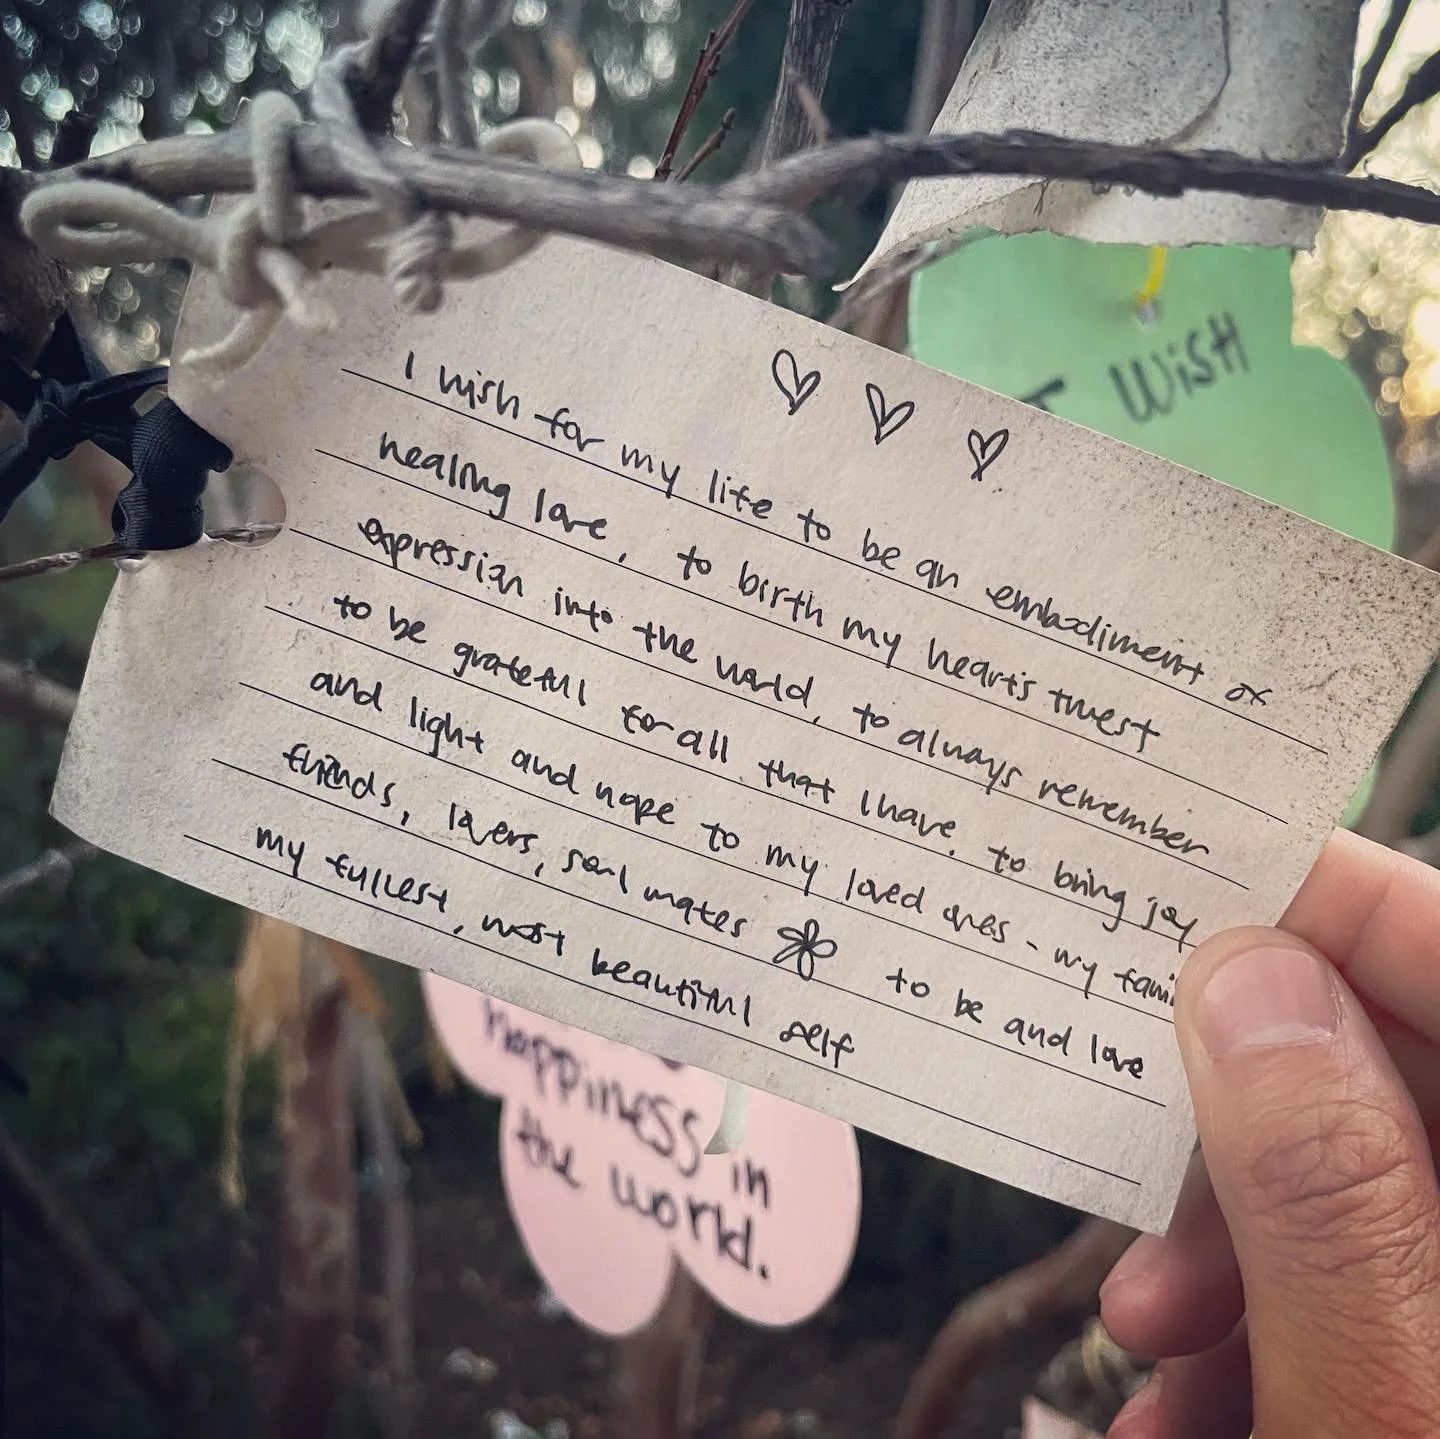 I wish for my life to be an embodiment of
healing love, to birth my heart's truest
expression into the world, to always remember
to be grateful for all that I have. to bring joy
and light and hope to my loved ones - my
friends, lovers, soul mates to be and love
my fullest, most beautiful self
I WISH
happiness in
the world.